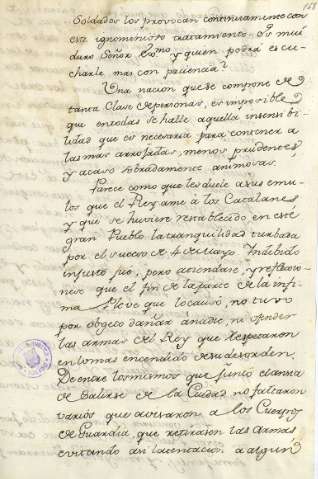 168
Soldados los provocan continuamente con
este ignominioso tratamiento. Es mui
duro Señor Exmo y quien podrá escu-
charle mas con paciencia?
Una nacion que se compone de
tanta Clase de personas, es imposible
que en todas se halle aquella insensibi-
lidad que es necesaria para contener a
las mas arrojadas, menos prudentes
y acaso sobradamente animosas.
Parece como que les duele a sus emu-
los que el Rey ame à los Catalanes
y que se huviese restablecido en este
gran Pueblo la tranquilidad turbada
por el suceso de 4 de Mayo.
injusto fue, pero atiendase, y reflexio-
nese que el fin de la parte de la infi-
ma Pleve que lo causó, no tuvo
por obgeto dañar á nadie, ni ofender
las armas del Rey que respetaron
en lo mas encendido de su desorden.
De entre los mismos que junto clama
de Salirse de la Ciudad no faltaron
varios que avisaron a los Cuerpos
de Guardia que retirasen las Armas
evitando asi la tentacion a algun